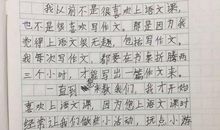 我以前不是很喜欢上语文课,
也不是很喜欢写作文,那是因为我
觉得上语文很无趣,包括写作文,
我每次写作文,都要在书桌折腾两
三个小时,才能写出一篇作文来。
一直到 教我们,我才开始
喜欢上语文课,因为您上语文课时
经常让我们做些小活动,玩点小游